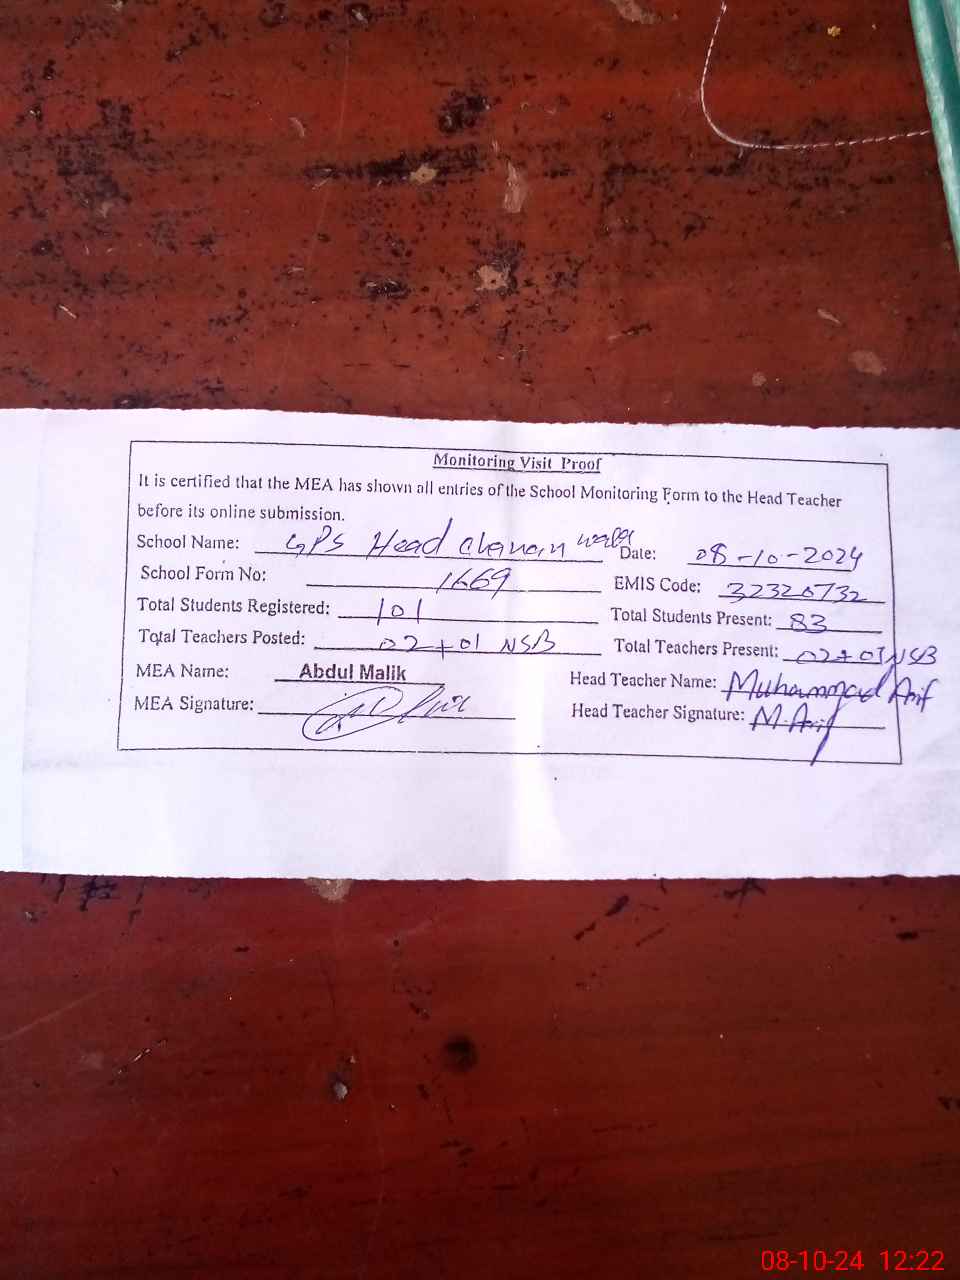 Monitoring Visit Proof
It is certified that the MEA has shown all entries of the School Monitoring Form to the Head Teacher
before its online submission.
School Name: GPS Head chanan wala Date: 08-10-2024
School Form No: 1669 EMIS Code: 32320732
Total Students Registered: 101 Total Students Present: 83
Total Teachers Posted: 02+01 NSB Total Teachers Present: 02+01 NSB
MEA Name: Abdul Malik Head Teacher Name: Muhammad Arif
MEA Signature: Head Teacher Signature: M.Arif
08-10-24 12:22